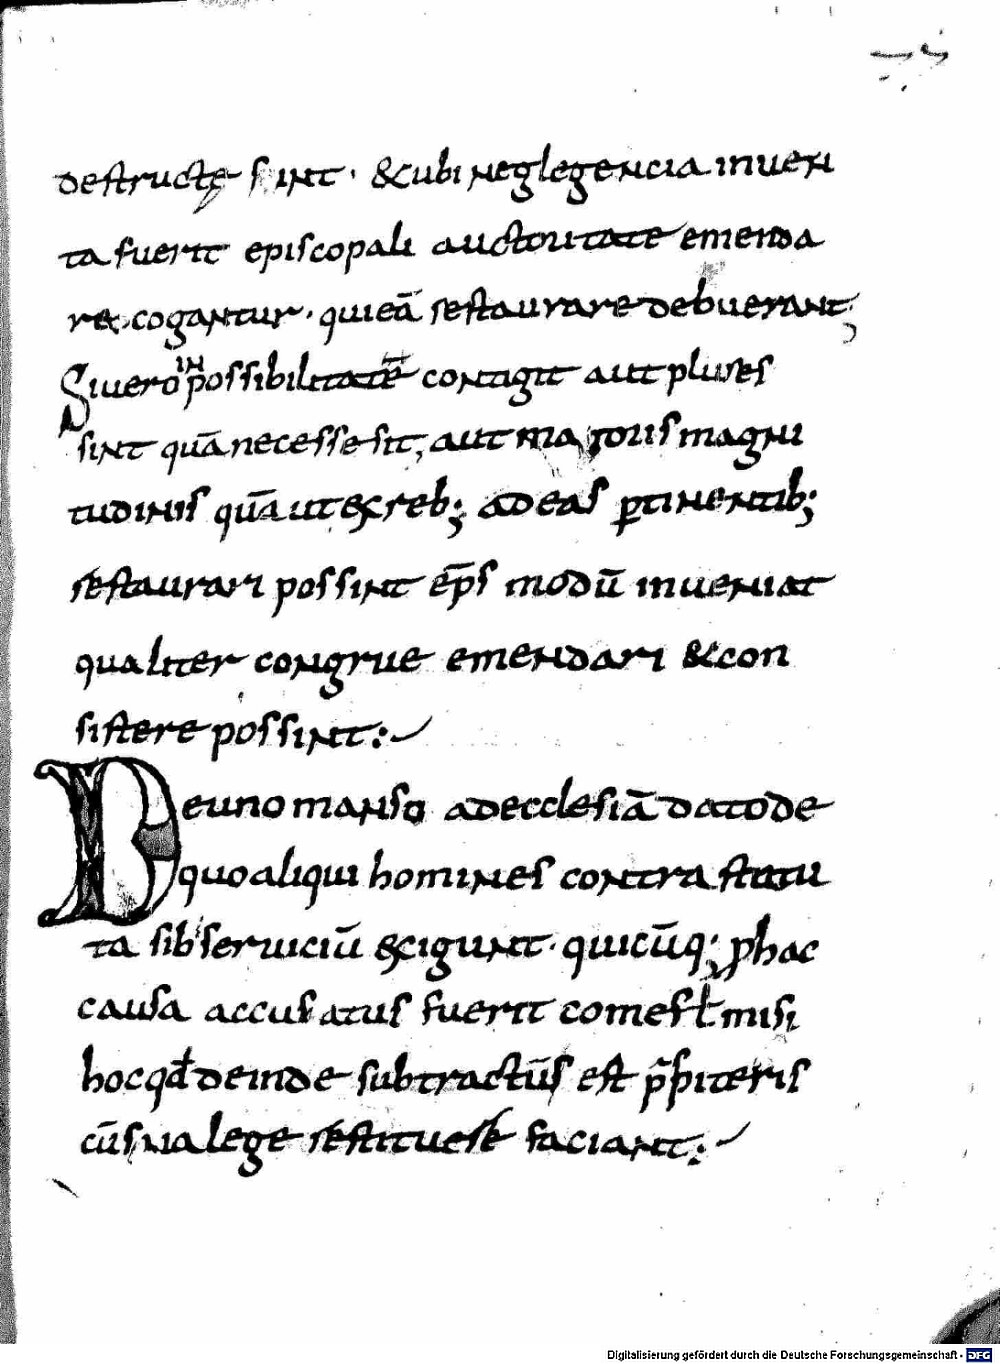 destructę sint · & ubi neglegencia inuen
ta fuerit episcopali auctoritate emenda
re cogantur · qui eā restaurare debuerant;
Si uero inpossibilitatē contigit aut plures
sint quā necesse sit, aut maioris magni
tudinis quā ut ex reb; ad eas ꝑtinentib;
restaurari possint ep̄s modū inueniat
qualiter congrue emendari & con
sistere possint :
De uno manso ad ecclesiā dato de
quo aliqui homines contra statu
ta sib' seruiciū exigunt · quicūq; ꝓ hac
causa accusatus fuerit comes ł misi
hoc qđ deinde subtractūs est p̄sƀiteris
cūsua lege restituere faciant :
Digitalisierung gefördert durch die Deutsche Forschungsgemeinschaft - DFG